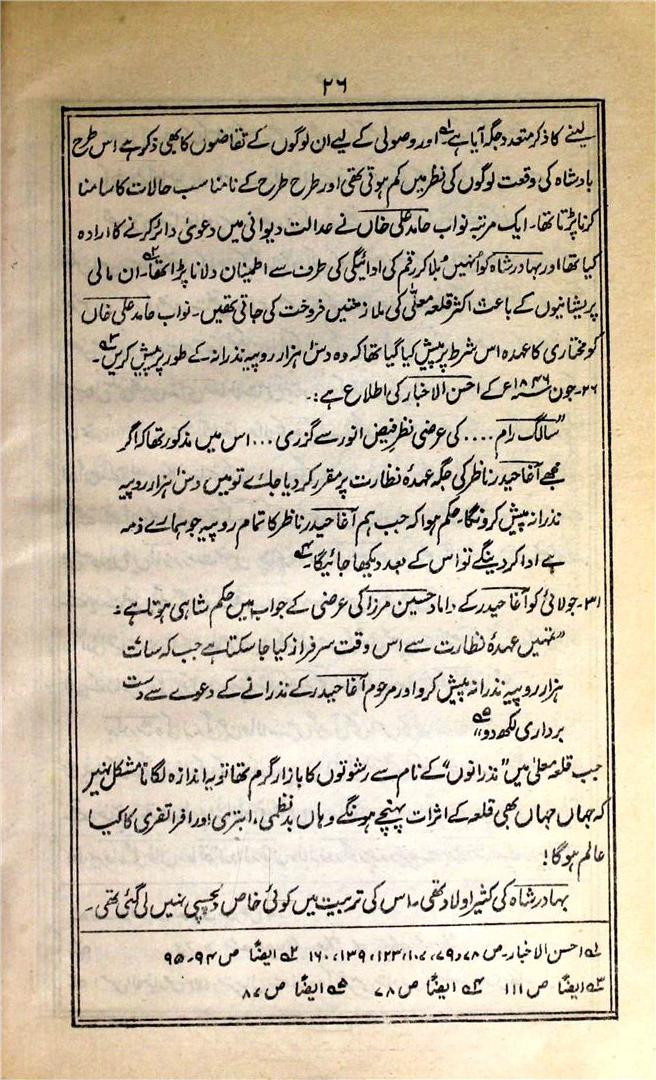 ۲۶
لینے کا ذکر متعدد جگہ آیا ہے۱؎ اور وصولی کے لیے ان لوگوں کے تقاضوں کا بھی ذکر ہے اس طرح
بادشاہ کی وقعت لوگوں کی نظر میں کم ہوتی تھی اور طرح طرح کے نامناسب حالات کا سامنا
کرنا پڑتا تھا۔ ایک مرتبہ نواب حامد علی خاں نے عدالت دیوانی میں دعویٰ دائر کرنے کا ارادہ
کیا تھا اور بہادر شاہ کو اُنہیں بُلا کر رقم کی ادائیگی کی طرف سے اطمینان دلانا پڑا تھا۲؎۔ ان مالی
پریشانیوں کے باعث اکثر قلعہ معلّٰی کی ملازمتیں فروخت کی جاتی تھیں۔ نواب حامد علی خاں
کو مختاری کا عہدہ اس شرط پر پیش کیا گیا تھا کہ وہ دس ہزار روپیہ نذرانہ کے طور پر پیش کریں۳؎۔
۲۶۔ جون ۱۸۴۶ء کے احسن الاخبار کی اطلاع ہے:۔
"سالگ رام .... کی عرضی نظر فیض انور سے گزری ... اس میں مذکور تھا کہ اگر
مجھے آغا حیدر ناظر کی جگہ عہدۂ نظارت پر مقرر کر دیا جائے تو میں دس ہزار روپیہ
نذرانہ پیش کرونگا۔ حکم ہوا کہ جب ہم آغا حیدر ناظر کا تمام روپیہ جو ہمارے ذمہ
ہے ادا کر دینگے تو اس کے بعد دیکھا جائیگا۔۴؎
۳۱۔ جولائی کو آغا حیدر کے داماد حسین مرزا کی عرضی کے جواب میں حکم شاہی ہوتا ہے:
"تمہیں عہدۂ نظارت سے اس وقت سرفراز کیا جا سکتا ہے جب کہ سات
ہزار روپیہ نذرانہ پیش کرو اور مرحوم آغا حیدر کے نذرانے کے دعوے سے دست
برداری لکھ دو"۵؎
جب قلعہ معلٰی میں "نذرانوں" کے نام سے رشوتوں کا بازار گرم تھا تو یہ اندازہ لگانا مشکل نہیں
کہ جہاں جہاں بھی قلعہ کے اثرات پہنچے ہونگے وہاں بدنظمی، ابتری اور افراتفری کا کیا
عالم ہوگا!
بہادر شاہ کی کثیر اولاد تھی۔ اس کی تربیت میں کوئی خاص دلچسپی نہیں لی گئی تھی۔
۱؎ احسن الاخبار۔ ص ۷۸ و ۷۹، ۱۰۷، ۱۲۳، ۱۳۹، ۱۶۰ ۲؎ ایضاً ص ۹۴۔ ۹۵
۳؎ ایضاً ص ۱۱۱ ۴؎ ایضاً ص ۷۸ ۵؎ ایضاً ص ۸۷